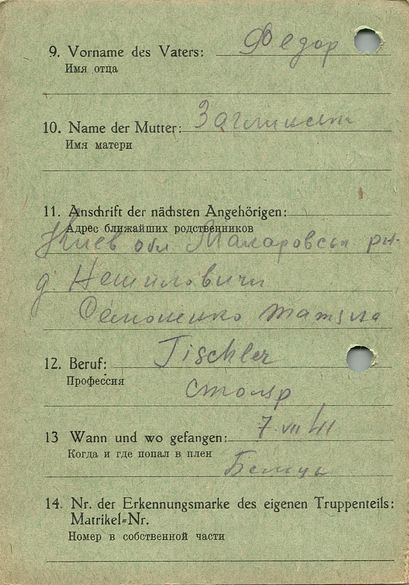 9. Vorname des Vaters: Федор
Имя отца
10. Name der Mutter:
Имя матери
11. Anschrift der nächsten Angehörigen:
Адрес ближайших родственников
Киев обл. Макаровськ рн.
д Небиловичи
12. Beruf: Tischler
Профессия
столяр
13 Wann und wo gefangen: 7 VII 41
Когда и где попал в плен
Бельцы
14. Nr. der Erkennungsmarke des eigenen Truppenteils:
Matrikel=Nr.
Номер в собственной части